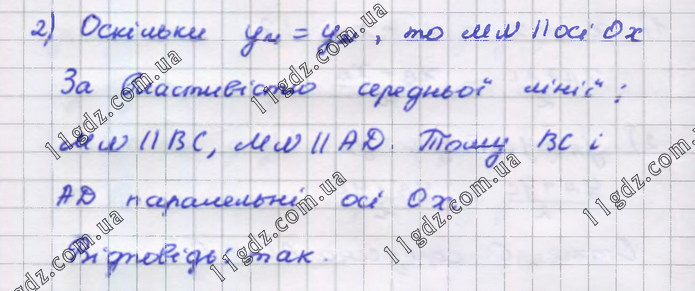 2) Оскільки yм = yN, то MN || осі Ox
За властивістю середньої лінії:
MN || BC, MN || AD. Тому BC і
AD паралельні осі Ox.
Відповідь: так.
11gdz.com.ua
11gdz.com.ua
11gdz.com.ua
11gdz.com.ua
11gdz.com.ua
11gdz.com.ua
11gdz.com.ua